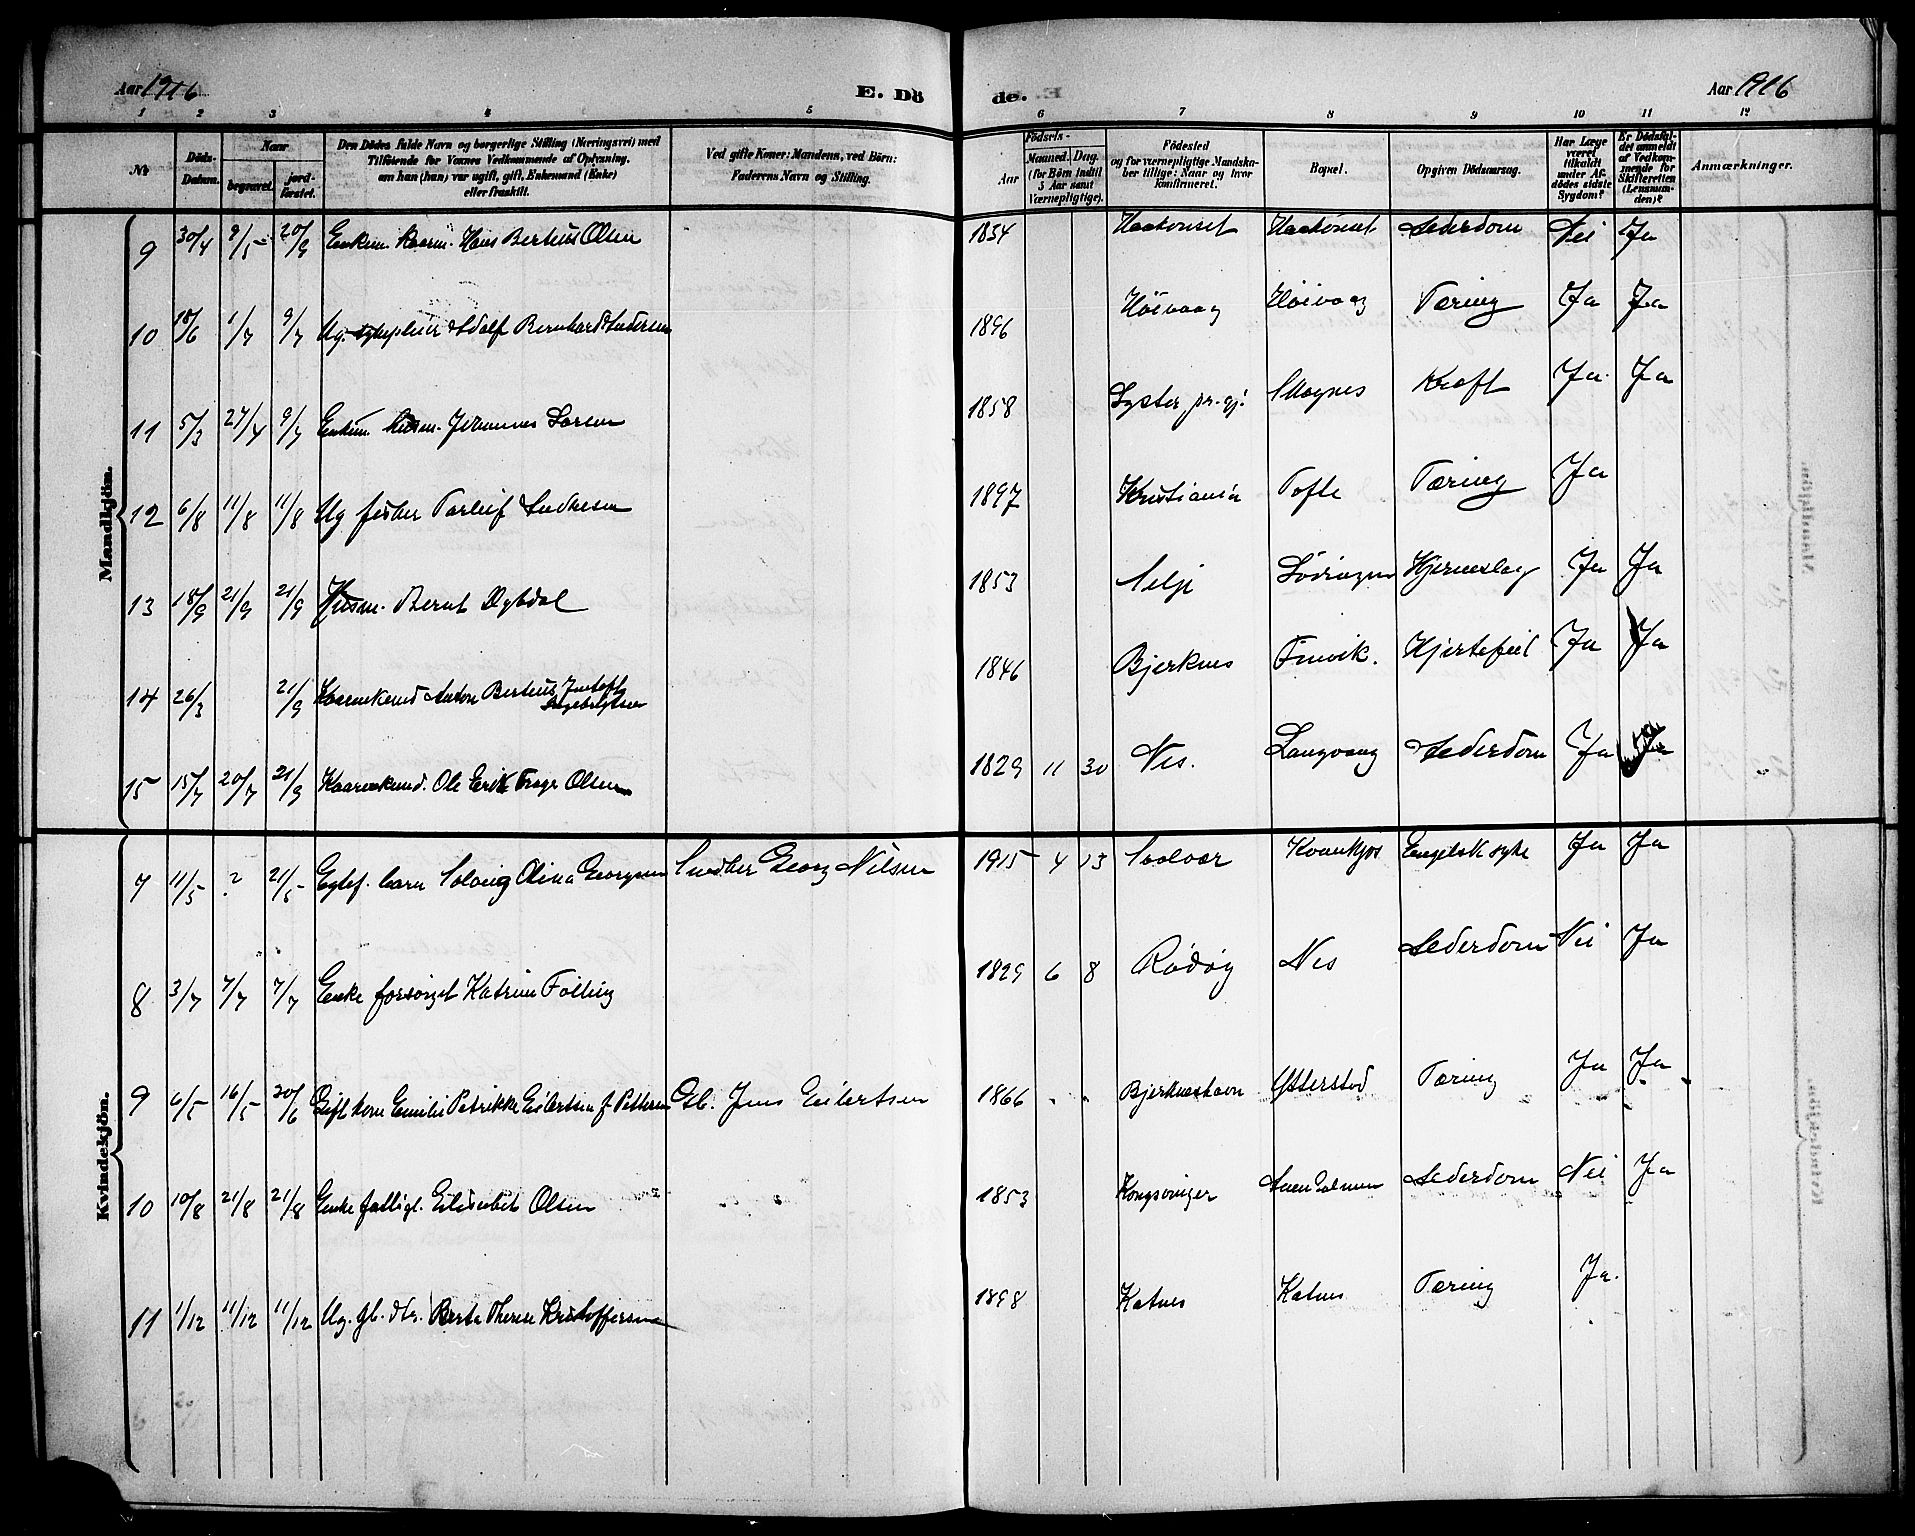 Aar 1916 E. Dö de. Aar 1916
1 2 3 4 5 6 7 8 9 10 11 12
№ Döds-Datum. Naar begravet. jord-fæstet. Den Dödes fulde Navn og borgerlige Stilling (Næringsvei) med Tilföiende for Voxnes Vedkommende af Oplysning, om han (hun) var ugift, gift, Enkemand (Enke) eller fraskilt. Ved gifte Koner: Mandens, ved Börn: Faderens Navn og Stilling. Födsels- Aar Maaned. Dag. (for Börn indtil 5 Aar samt Værnepligtige). Födested og for værnepligtige Mandska-ber tillige: Naar og hvor konfirmeret. Bopæl. Opgiven Dödsaarsag. Har Læge været tilkaldt under Af-dödes sidste Sygdom? Er Dödsfal-det anmeldt af Vedkom-mende for Skifteretten (Lensman-den)? Anmærkninger.
Mandkjön.
9 30/4 9/5 20/9 Enkem. kaarm. Hans Berteus Olsen 1834 Haakonset Haakonset Alderdom Nei Ja
10 18/6 1/7 9/7 Ug. Adolf Bernhard Andersen 1896 Höivaag Höivaag Tæring Ja Ja
11 5/3 27/4 9/7 Enkem. husm. Johannes Larsen 1858 Lyster pr.gj. Kraft Ja Ja
12 6/8 11/8 11/8 Ug fisker Torleif 1897 Kristiania Tofte Tæring Ja
13 18/9 21/9 21/9 Husm. Bernt Dybdal 1853 Selje Lödingen Hjerneslag Ja Ja
14 26/3 21/9 Kaarenkemd Anton Berteus Ingebrigtsen 1846 Bjerknes Finvik. Hjertefeil Ja Ja
15 15/7 20/7 21/9 Kaarenkemd. Ole Erik Olsen 1829 11 30 Nes. Langvaag Alderdom Ja Ja
Kvindekjön.
7 11/5 ? 21/5 Egtef. barn Solveig Olina Georgsen Georg Nilsen 1915 4 13 Solvær Kvankjos Engelsk syke Ja Ja
8 3/7 7/7 7/7 Enke forsörget Katrine Fölling 1829 6 8 Rödöy Nes Alderdom Nei Ja
9 6/5 16/5 20/6 Gift kone Emilie Petrikke Eilertsen f. Pettersen Gb. Jens Eilertsen 1866 Ytterstad Tæring Ja Ja
10 10/8 21/8 21/8 Enke fattigl. Elisabet Olsen 1853 Kongsvinger Alderdom Nei Ja
11 1/12 11/12 11/12 Ug. gb. dtr. Berta Therese Kristoffersen 1898 Katnes Katnes Tæring Ja.